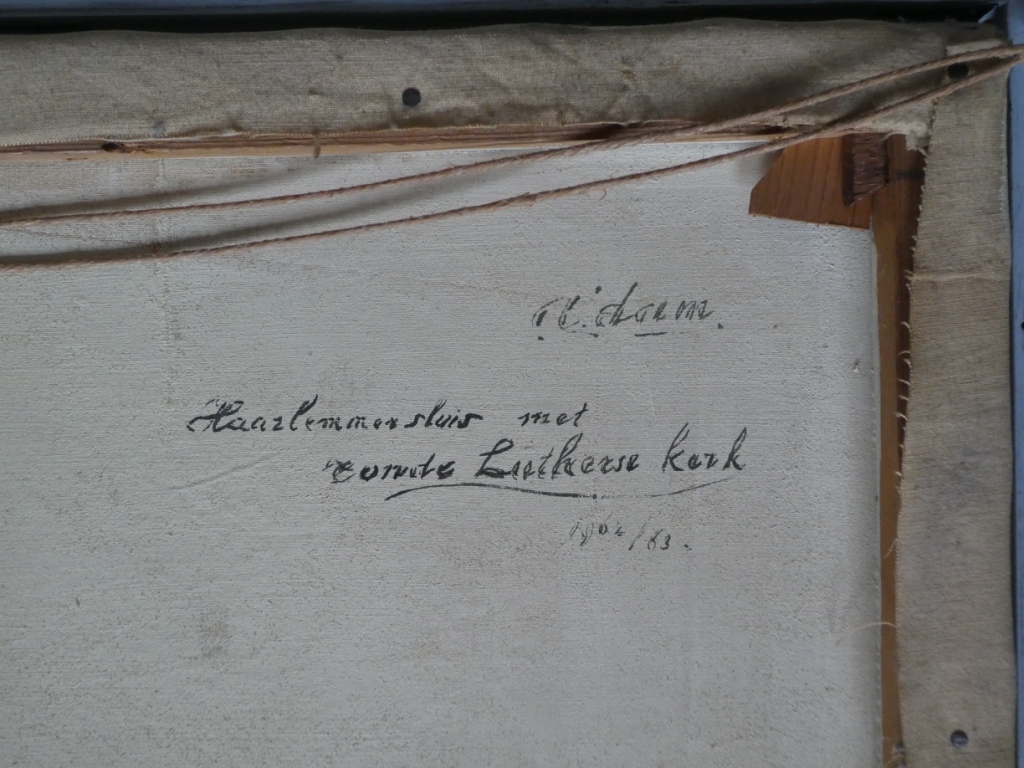 Haarlemmersluis met
ronde Lutherse kerk
1962/63.